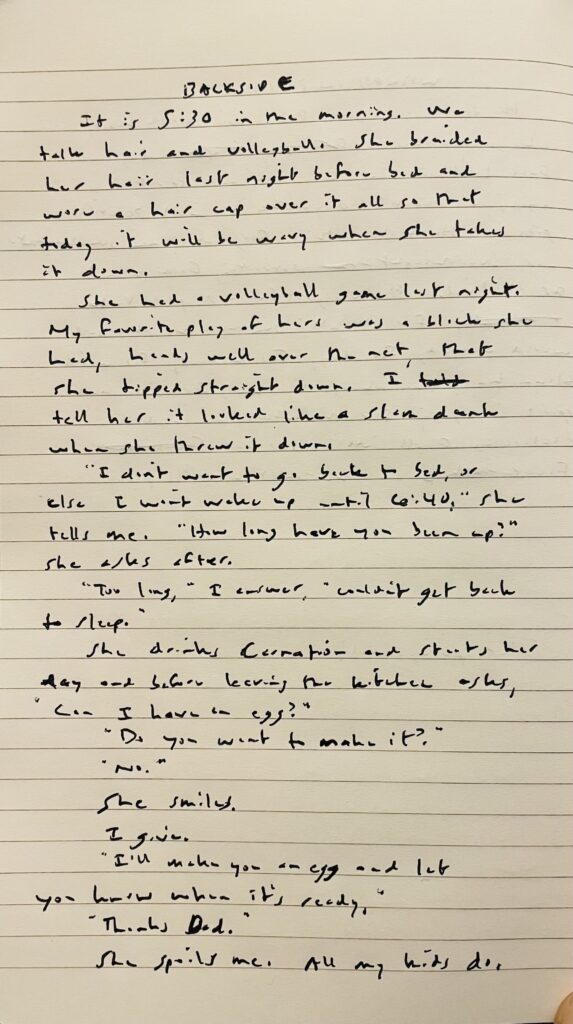 BACKSIDE
It is 5:30 in the morning. We
talk hair and volleyball. She braided
her hair last night before bed and
wore a hair cap over it all so that
today it will be wavy when she takes
it down.
She had a volleyball game last night.
My favorite play of hers was a block she
had, hands well over the net, that
she tipped straight down. I told
tell her it looked like a slam dunk
when she threw it down.
"I don't want to go back to bed, or
else I won't wake up until 6:40," she
tells me. "How long have you been up?"
she asks after.
"Too long," I answer, "couldn't get back
to sleep."
She drinks Carnation and starts her
day and before leaving the kitchen asks,
"Can I have an egg?"
"Do you want to make it?"
"No."
She smiles.
I give.
"I'll make you an egg and let
you know when it's ready."
"Thanks Dad."
She spoils me. All my kids do.